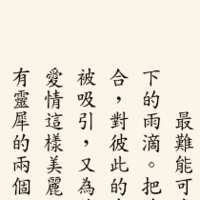 最難能可
下的雨滴。把
合，對彼此的
被吸引，又為
愛情這樣美麗
有靈犀的兩個